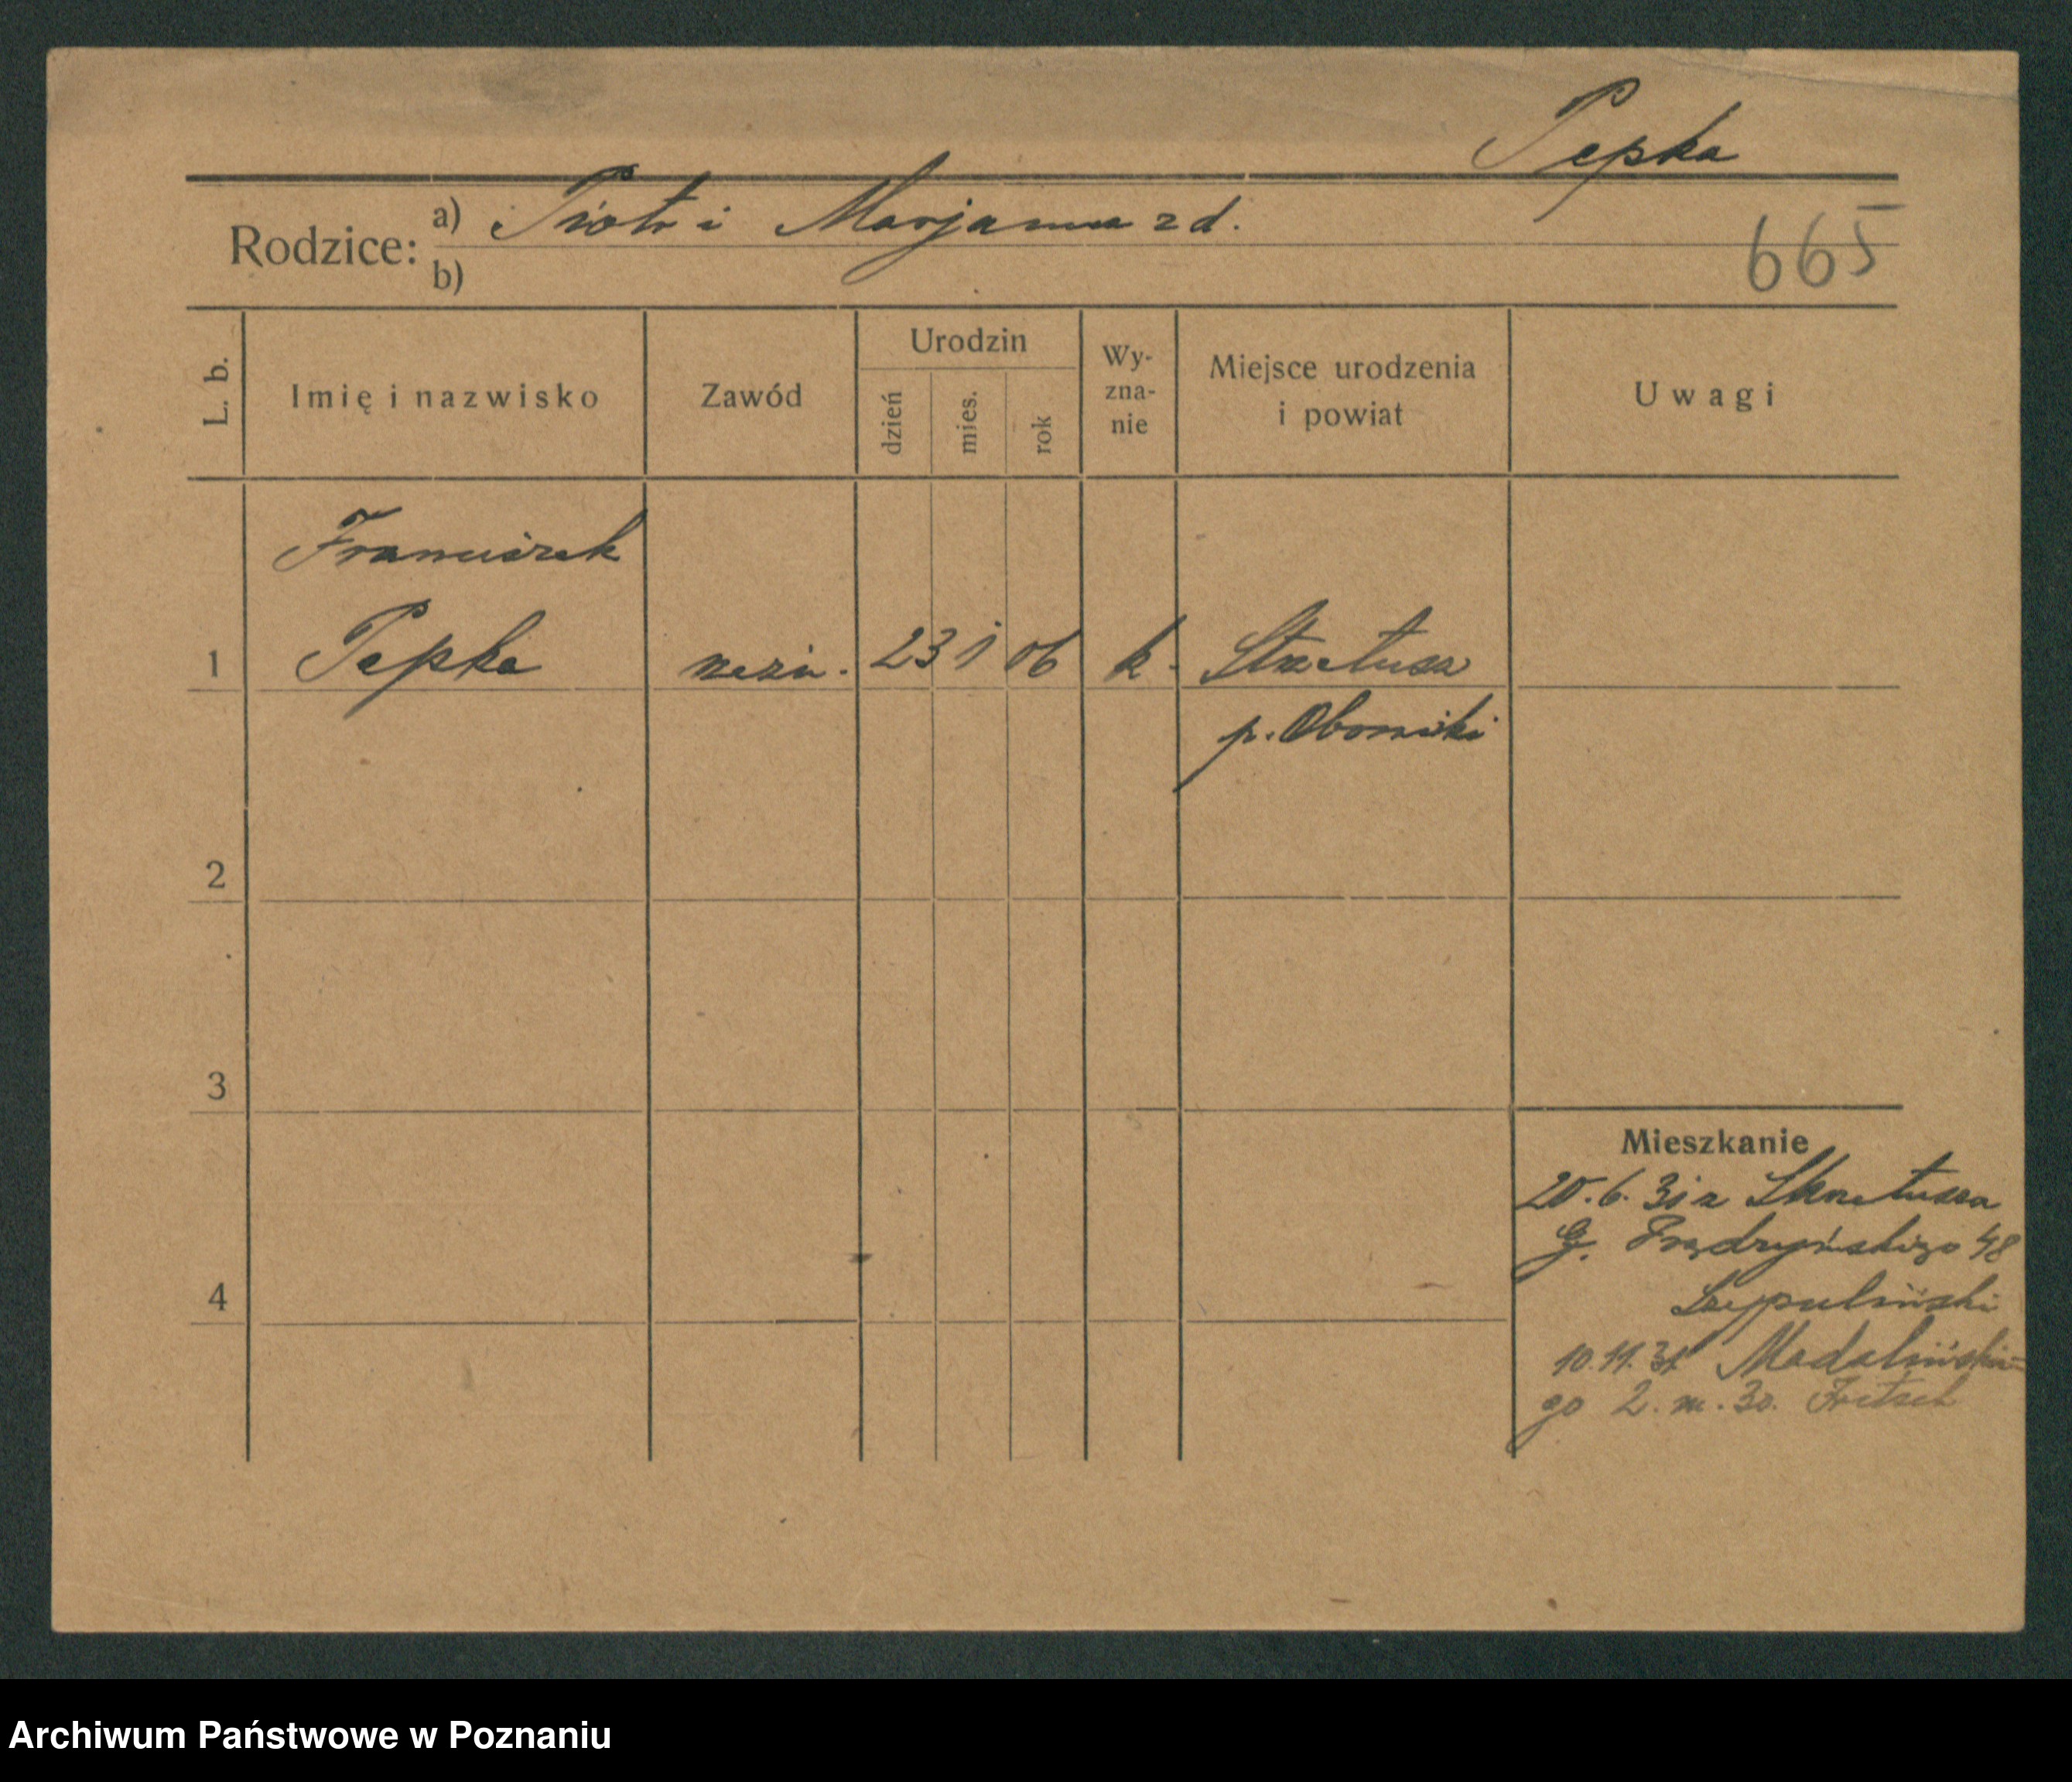 Pepka
Rodzice: a) Piotr i Marjanna z d.
b)
665
L. b.
Imię i nazwisko
Zawód
Urodzin
dzień
mies.
rok
Wy-
zna-
nie
Miejsce urodzenia
i powiat
Uwagi
Franciszek
1 Pepka rzeźn. 23 1 06 k. Skrzetusz
p. Oborniki
2
3
4
Mieszkanie
20.6.31 z Skrzetusza
G. Prądzyńskiego 48
10.11.31 Madalińskie=
go 2. m. 30. Fritsch
Archiwum Państwowe w Poznaniu